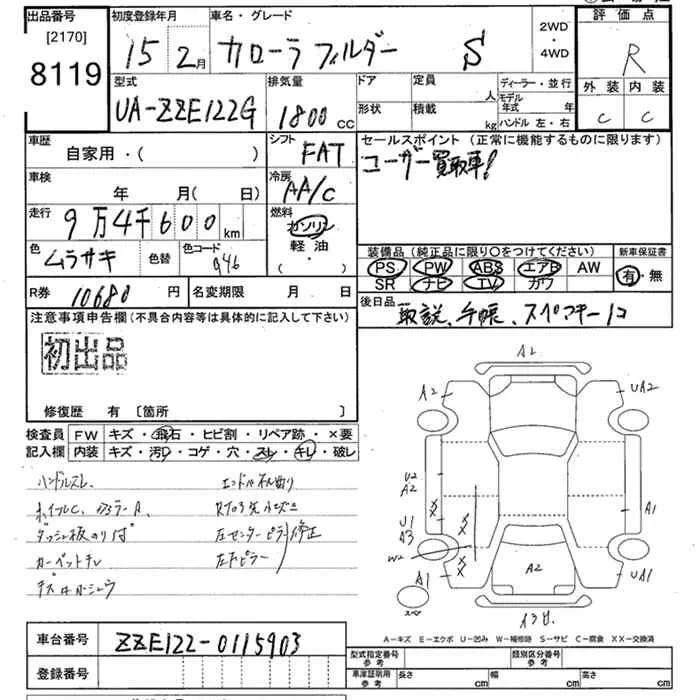 出品番号 初度登録年月 車名・グレード 2WD・4WD 評価点
[2170]
8119 15 2月 カローラフィルダー S R
外装 内装
C C
型式 排気量 ドア 定員 人 ディーラー・並行
UA-ZZE122G 1800CC 形状 積載 kg モデル年式 年
ハンドル 左・右
車歴 シフト セールスポイント (正常に機能するものに限ります)
自家用・( ) FAT ユーザー買取車!
車検 冷房
年 月( 日) AA/C
走行 燃料
9万4千600km ガソリン
軽油
・( )
色 色替 色コード
ムラサキ 946
装備品(純正品に限り○をつけてください) 新車保証書
PS PW ABS エアB AW 有・無
SR ナビ TV カワ
R券 10680円 名変期限 月 日
後日品 取説、手帳、スペアキー1コ
注意事項申告欄(不具合内容等は具体的に記入して下さい)
初出品
修復歴 有 〔箇所 〕
検査員 FW キズ・飛石・ヒビ割・リペア跡・×要
記入欄 内装 キズ・汚レ・コゲ・穴・スレ・キレ・破レ
ハンドルスレ
ホイルC、
ダッシュ板のり付
カーペットキレ
左センターピラー 修正
左Fピラー
A2
A2 UA2
U2
A2
U1
A3
A1
W2
A1 UA1
A2
スペア
XX
XX
XX
A-キズ E-エクボ U-凹み W-補修跡 S-サビ C-腐食 XX-交換済
車台番号 ZZE122-0115903
登録番号
型式指定番号 参考 類別区分番号 参考
車庫証明用 参考 長さ cm 幅 cm 高さ cm